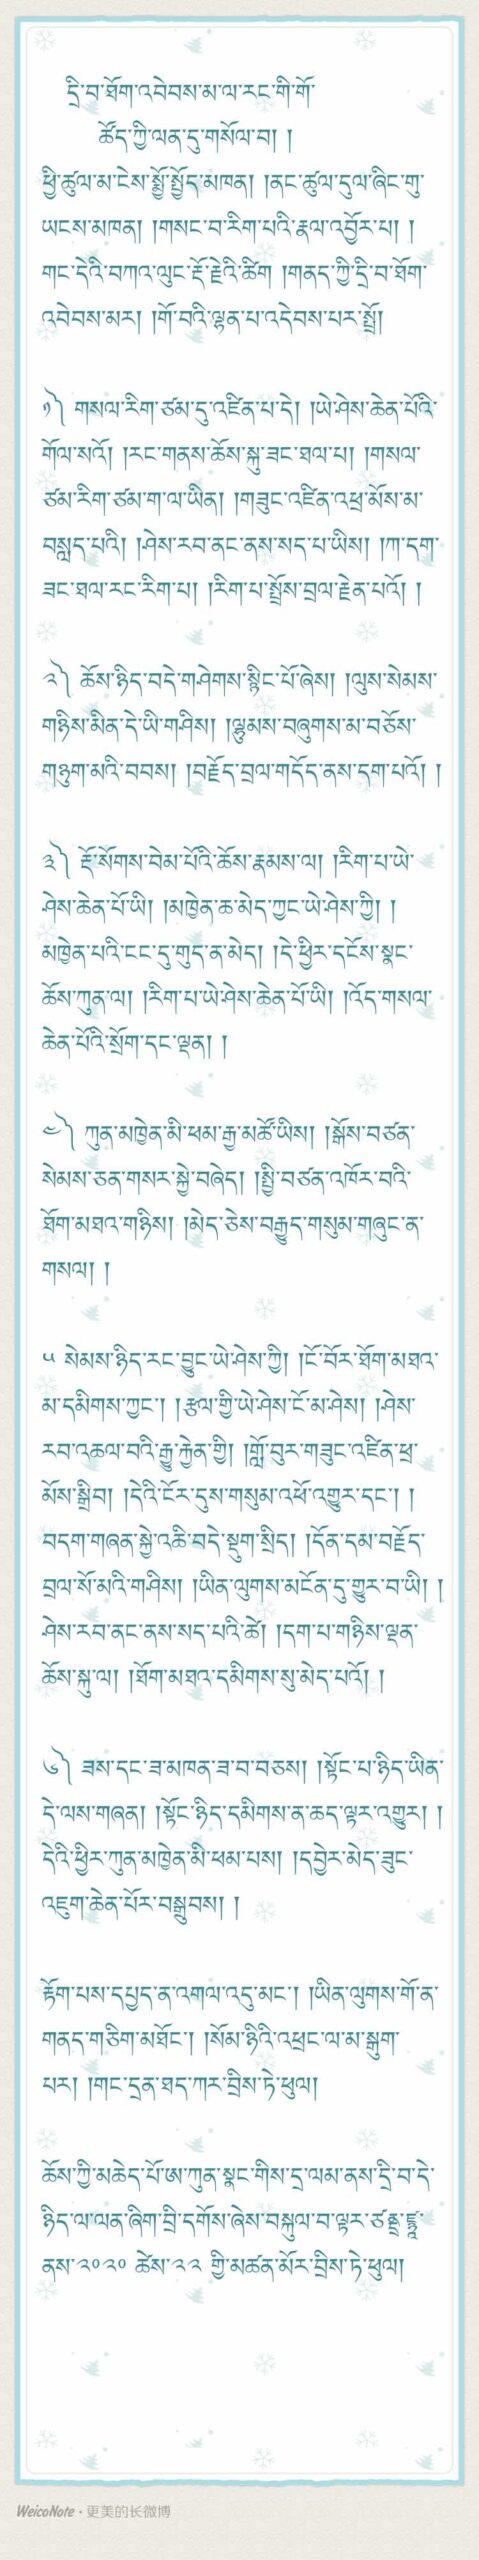 དྲི་བ་ཐོག་འབེབས་མ་ལ་རང་གི་གོ་
ཚོད་ཀྱི་ལན་དུ་གསོལ་བ། །
ཕྱི་ཚུལ་མ་ངེས་སྨྱོ་སྤྱོད་མཁན། །ནང་ཚུལ་དུལ་ཞིང་གུ་
ཡངས་མཁན། །གསང་བ་རིག་པའི་རྣལ་འབྱོར་པ། །
གང་དེའི་བཀའ་ལུང་རྡོ་རྗེའི་ཚིག །གནད་ཀྱི་དྲི་བ་ཐོག་
འབེབས་མར། །གོ་བའི་ལྷན་པ་འདེབས་པར་སྤྲོ།
༡༽ གསལ་རིག་ཙམ་དུ་འཛིན་པ་དེ། །ཡེ་ཤེས་ཆེན་པོའི་
གོལ་སའོ། །རང་གནས་ཆོས་སྐུ་ཟང་ཐལ་པ། །གསལ་
ཙམ་རིག་ཙམ་ག་ལ་ཡིན། །གཟུང་འཛིན་འཕྲ་མོས་མ་
བསླད་པའི། །ཤེས་རབ་ནང་ནས་སད་པ་ཡིས། །ཀ་དག་
ཟང་ཐལ་རང་རིག་པ། །རིག་པ་སྤྲོས་བྲལ་རྗེན་པའོ། །
༢༽ ཆོས་ཉིད་བདེ་གཤེགས་སྙིང་པོ་ཞེས། །ལུས་སེམས་
གཉིས་མིན་དེ་ཡི་གཤིས། །ལྷུམས་བཞུགས་མ་བཅོས་
གཉུག་མའི་བབས། །བརྗོད་བྲལ་གདོད་ནས་དག་པའོ། །
༣༽ རྡོ་སོགས་བེམ་པོའི་ཆོས་རྣམས་ལ། །རིག་པ་ཡེ་
ཤེས་ཆེན་པོ་ཡི། །མཁྱེན་ཆ་མེད་ཀྱང་ཡེ་ཤེས་ཀྱི། །
མཁྱེན་པའི་ངང་དུ་གུད་ན་མེད། །དེ་ཕྱིར་དངོས་སྣང་
ཆོས་ཀུན་ལ། །རིག་པ་ཡེ་ཤེས་ཆེན་པོ་ཡི། །འོད་གསལ་
ཆེན་པོའི་སྲོག་དང་ལྡན། །
༤༽ ཀུན་མཁྱེན་མི་ཕམ་རྒྱ་མཚོ་ཡིས། །སྒོས་བཙན་
སེམས་ཅན་གསར་སྐྱེ་བཞེད། །སྤྱི་བཙན་འཁོར་བའི་
ཐོག་མཐའ་གཉིས། །མེད་ཅེས་བརྒྱུད་གསུམ་གཞུང་ན་
གསལ། །
༥ སེམས་ཉིད་རང་བྱུང་ཡེ་ཤེས་ཀྱི། །ངོ་བོར་ཐོག་མཐའ་
མ་དམིགས་ཀྱང་། །རྩལ་གྱི་ཡེ་ཤེས་ངོ་མ་ཤེས། །ཤེས་
རབ་འཆལ་བའི་རྒྱུ་རྐྱེན་གྱི། །གློ་བུར་གཟུང་འཛིན་ཕྲ་
མོས་སྒྲིབ། །དེའི་ངོར་དུས་གསུམ་འཕོ་འགྱུར་དང་། །
བདག་གཞན་སྐྱེ་འཆི་བདེ་སྡུག་སྲིད། །དོན་དམ་བརྗོད་
བྲལ་སོ་མའི་གཤིས། །ཡིན་ལུགས་མངོན་དུ་གྱུར་བ་ཡི། །
ཤེས་རབ་ནང་ནས་སད་པའི་ཚེ། །དག་པ་གཉིས་ལྡན་
ཆོས་སྐུ་ལ། །ཐོག་མཐའ་དམིགས་སུ་མེད་པའོ། །
༦༽ ཟས་དང་ཟ་མཁན་ཟ་བ་བཅས། །སྟོང་པ་ཉིད་ཡིན་
དེ་ལས་གཞན། །སྟོང་ཉིད་དམིགས་ན་ཆད་ལྟར་འགྱུར། །
དེའི་ཕྱིར་ཀུན་མཁྱེན་མི་ཕམ་པས། །དབྱེར་མེད་ཟུང་
འཇུག་ཆེན་པོར་བསྒྲུབས། །
རྟོག་པས་དཔྱད་ན་འགལ་འདུ་མང་། །ཡིན་ལུགས་གོ་ན་
གནད་གཅིག་མཐོང་། །སོམ་ཉིའི་འཕྲང་ལ་མ་སྐྲག་
པར། །གང་དྲན་ཐད་ཀར་བྲིས་ཏེ་ཕུལ།
ཆོས་ཀྱི་མཆེད་པོ་ཨ་ཀུན་སྣང་གིས་དྲ་ལམ་ནས་དྲི་བ་དེ་
ཉིད་ལ་ལན་ཞིག་བྲི་དགོས་ཞེས་བསྐུལ་བ་ལྟར་ཙནྡྲ་
ནས་༢༠༢༠ ཚེས་༢༢ གྱི་མཚན་མོར་བྲིས་ཏེ་ཕུལ།
WeicoNote · 更美的长微博